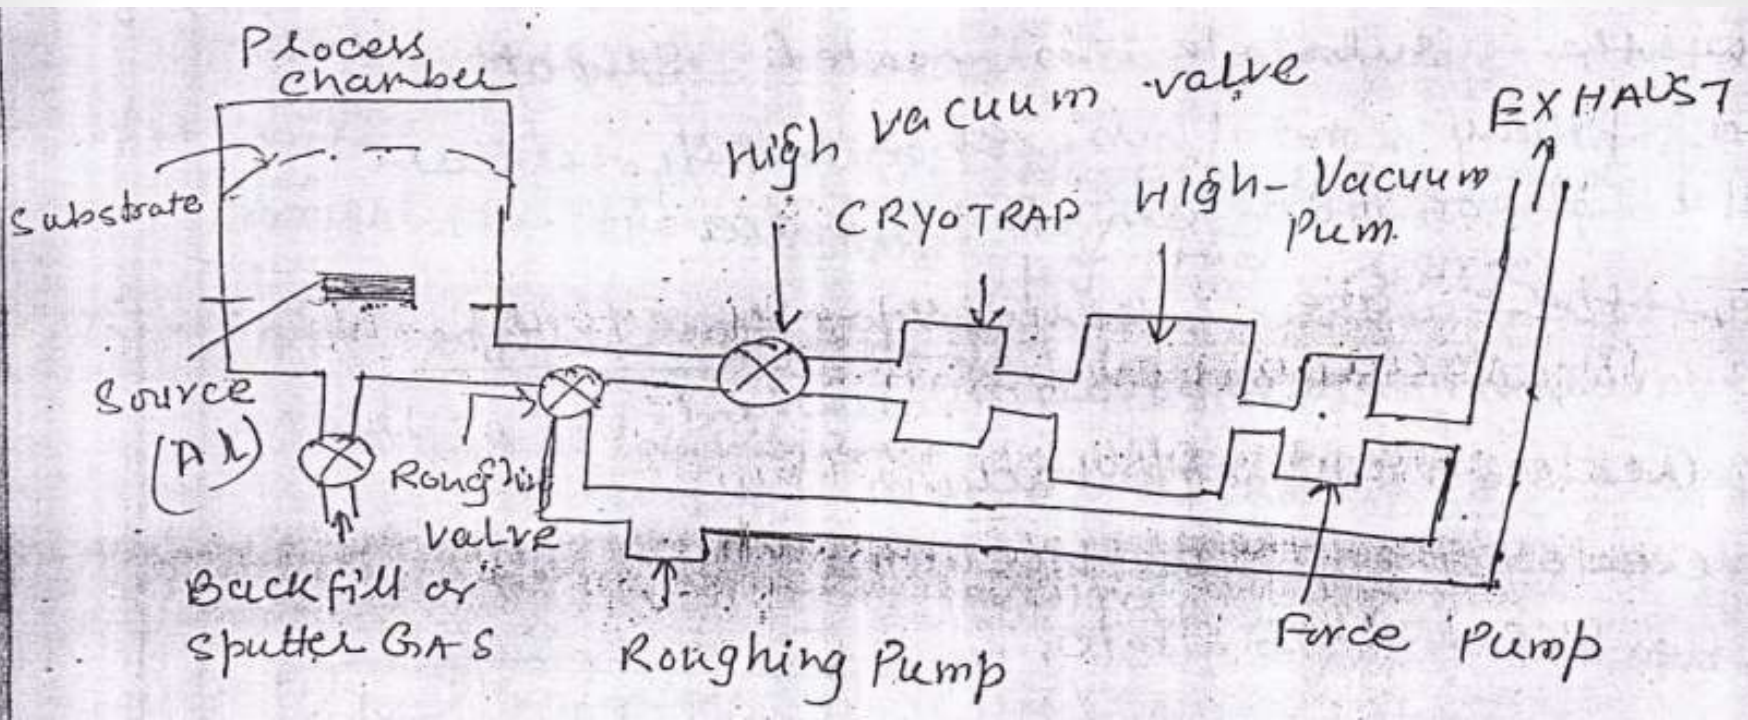 Process
chamber
High vacuum valve
EXHAUST
Substrate
CRYOTRAP
HIGh-Vacuum
Pum.
Source
(Al)
Roughing
valve
Backfill or
sputter GAS
Roughing Pump
Force Pump